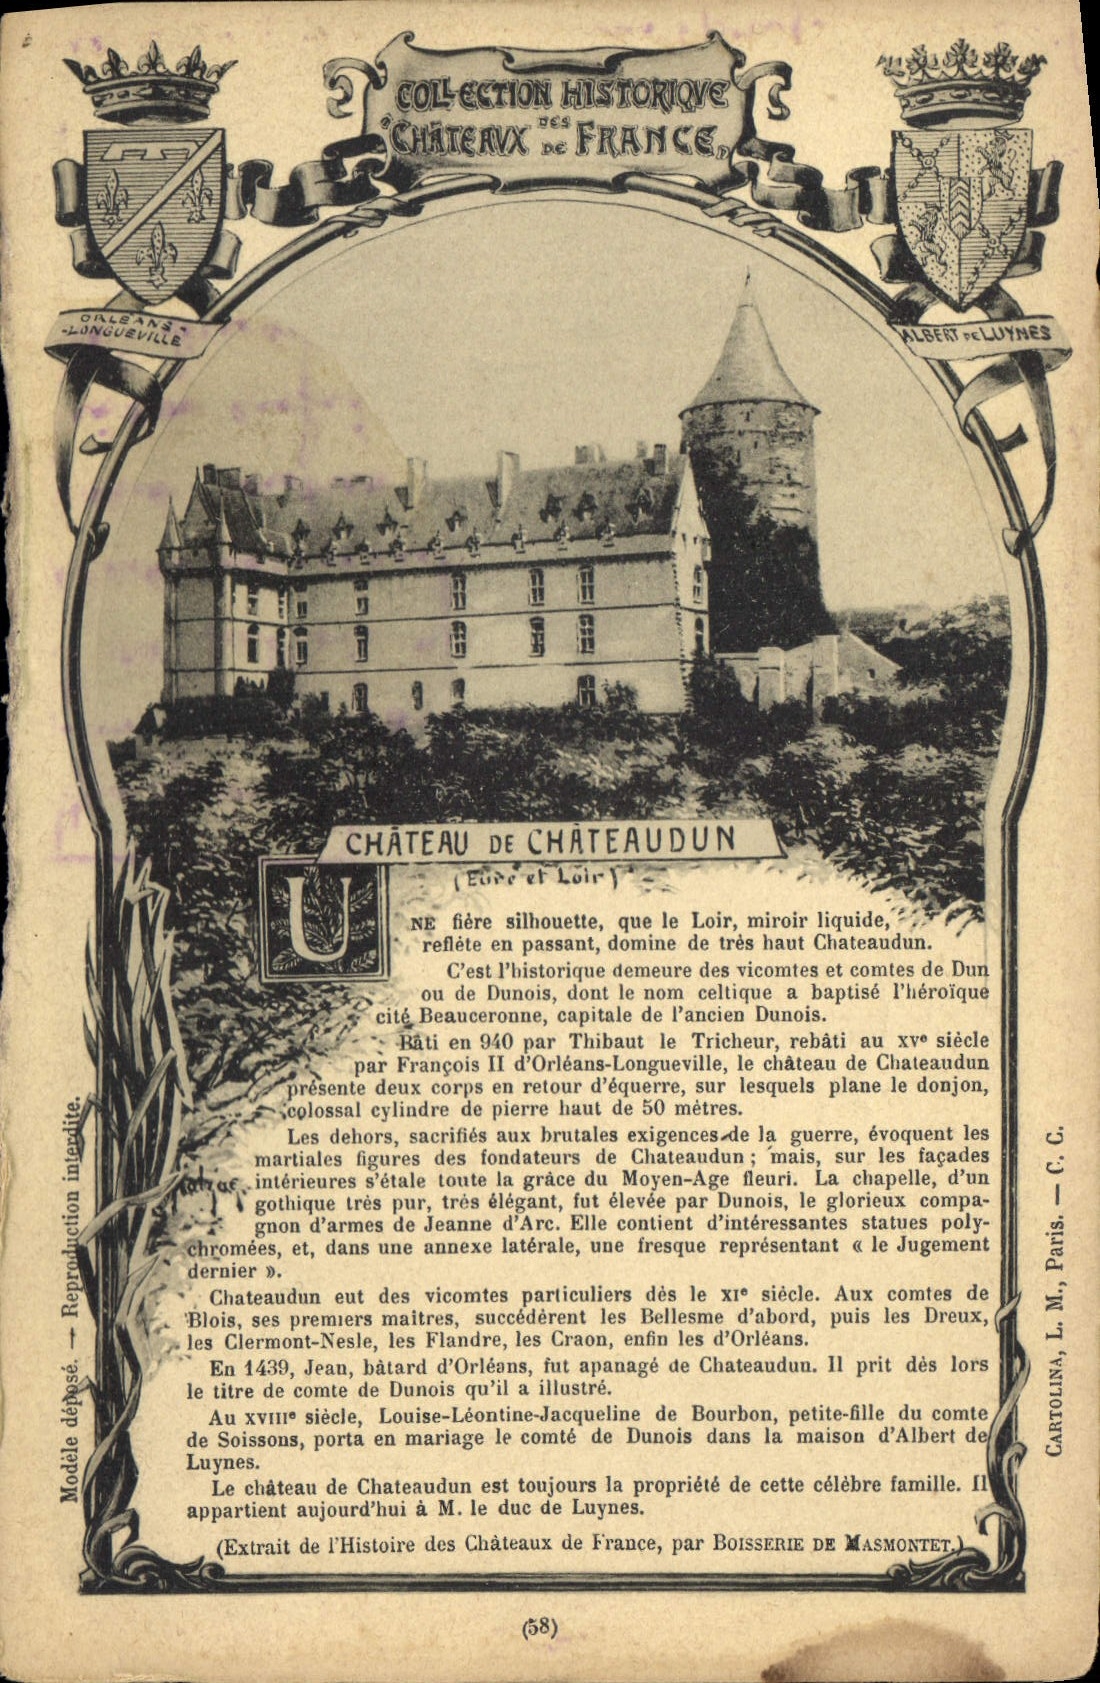 COLLECTION HISTORIQVE
DES
"CHÂTEAVX DE FRANCE"
ORLÉANS-
-LONGUEVILLE
ALBERT DE LUYNES
CHÂTEAU DE CHÂTEAUDUN
(Eure et Loir)
UNE fière silhouette, que le Loir, miroir liquide,
reflète en passant, domine de très haut Chateaudun.
C'est l'historique demeure des vicomtes et comtes de Dun
ou de Dunois, dont le nom celtique a baptisé l'héroïque
cité Beauceronne, capitale de l'ancien Dunois.
Bâti en 940 par Thibaut le Tricheur, rebâti au XVe siècle
par François II d'Orléans-Longueville, le château de Chateaudun
présente deux corps en retour d'équerre, sur lesquels plane le donjon,
colossal cylindre de pierre haut de 50 mètres.
Les dehors, sacrifiés aux brutales exigences de la guerre, évoquent les
martiales figures des fondateurs de Chateaudun ; mais, sur les façades
intérieures s'étale toute la grâce du Moyen-Age fleuri. La chapelle, d'un
gothique très pur, très élégant, fut élevée par Dunois, le glorieux compa-
gnon d'armes de Jeanne d'Arc. Elle contient d'intéressantes statues poly-
chromées, et, dans une annexe latérale, une fresque représentant « le Jugement
dernier ».
Chateaudun eut des vicomtes particuliers dès le XIe siècle. Aux comtes de
Blois, ses premiers maîtres, succédèrent les Bellesme d'abord, puis les Dreux,
les Clermont-Nesle, les Flandre, les Craon, enfin les d'Orléans.
En 1439, Jean, bâtard d'Orléans, fut apanagé de Chateaudun. Il prit dès lors
le titre de comte de Dunois qu'il a illustré.
Au XVIIIe siècle, Louise-Léontine-Jacqueline de Bourbon, petite-fille du comte
de Soissons, porta en mariage le comté de Dunois dans la maison d'Albert de
Luynes.
Le château de Chateaudun est toujours la propriété de cette célèbre famille. Il
appartient aujourd'hui à M. le duc de Luynes.
(Extrait de l'Histoire des Châteaux de France, par BOISSERIE DE MASMONTET.)
(58)
Modèle déposé. — Reproduction interdite.
CARTOLINA, L. M., Paris. — C. C.